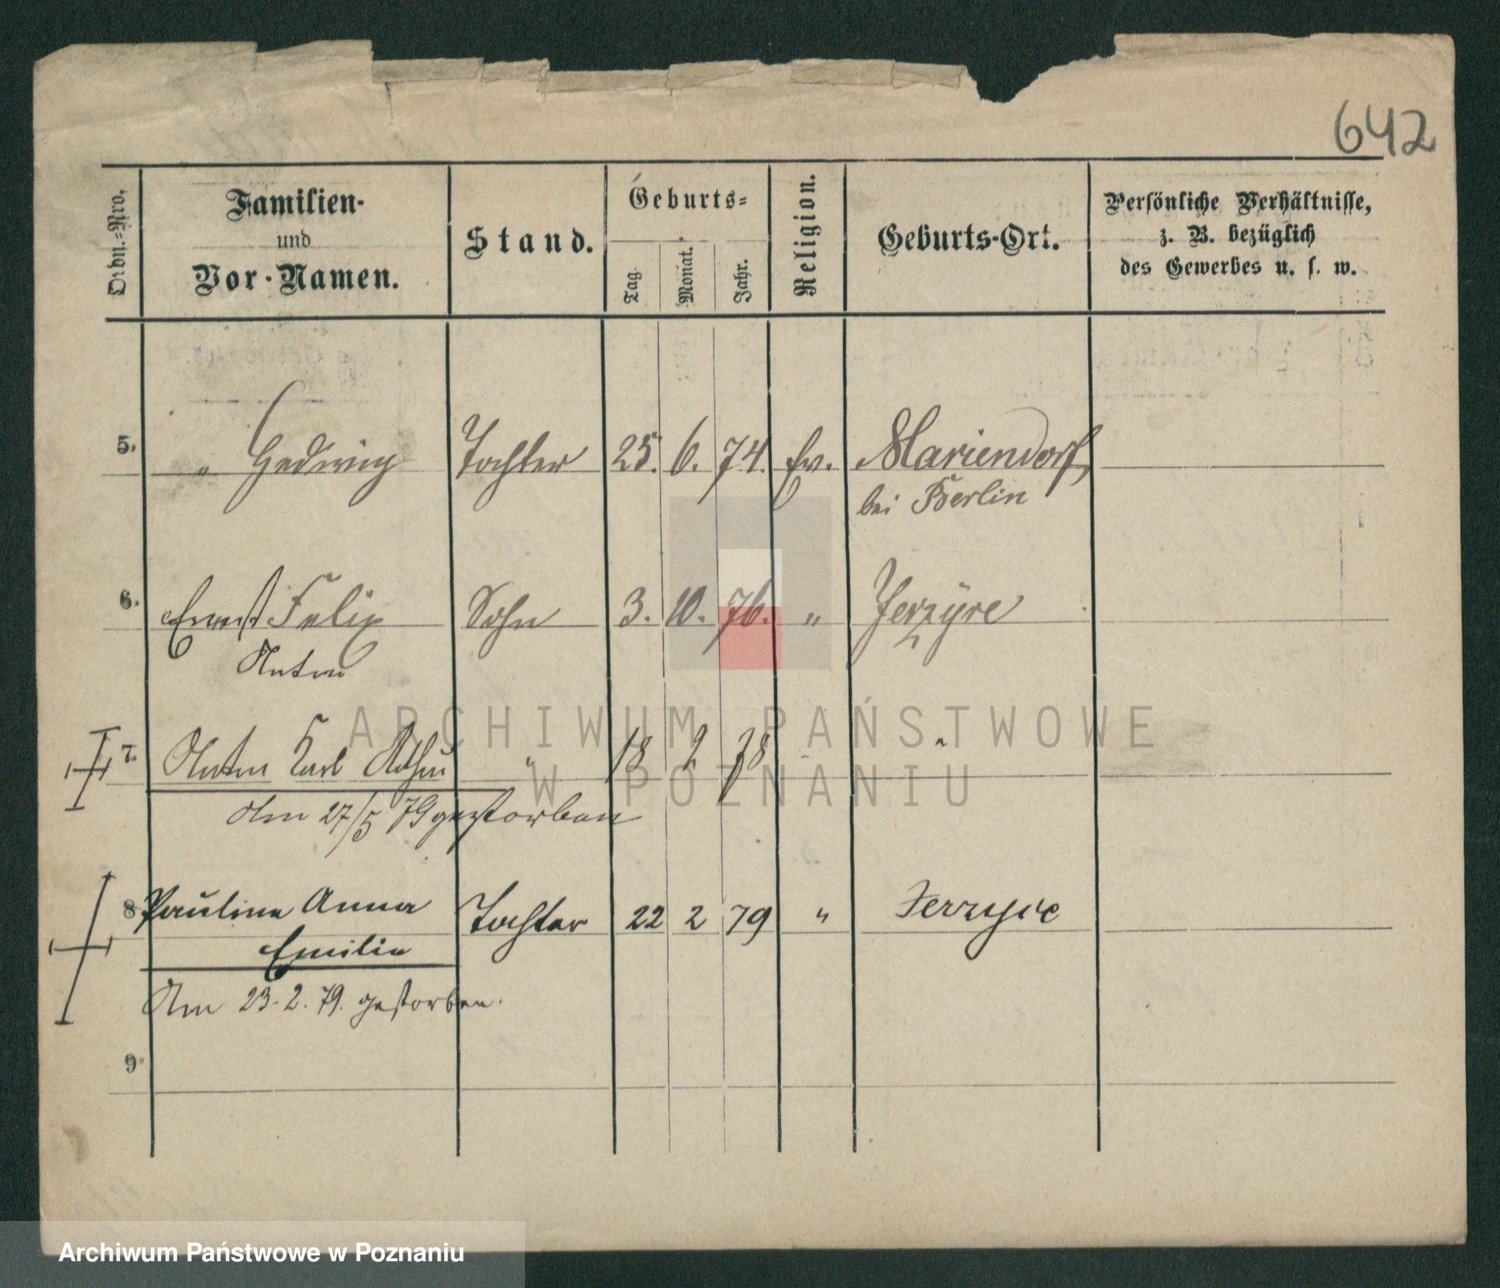 642
Ordn.-Nro.
Familien-
und
Vor-Namen.
Stand.
Geburts-
Tag.
Monat.
Jahr.
Religion.
Geburts-Ort.
Persönliche Verhältnisse,
z. B. bezüglich
des Gewerbes u. s. w.
5. " Hedwig Tochter 25. 6. 74. Ev. Mariendorf
bei Berlin
6. Ernst Felix Sohn 3. 10. 76. " Jerzyce
Anton
7. Anton Karl Arthur " 18 2 78 "
Am 27/5 79 gestorben
8 Pauline Anna Tochter 22 2 79 " Jerzyce
Emilie
Am 23.2.79. gestorben.
9.
ARCHIWUM PAŃSTWOWE
W POZNANIU
Archiwum Państwowe w Poznaniu